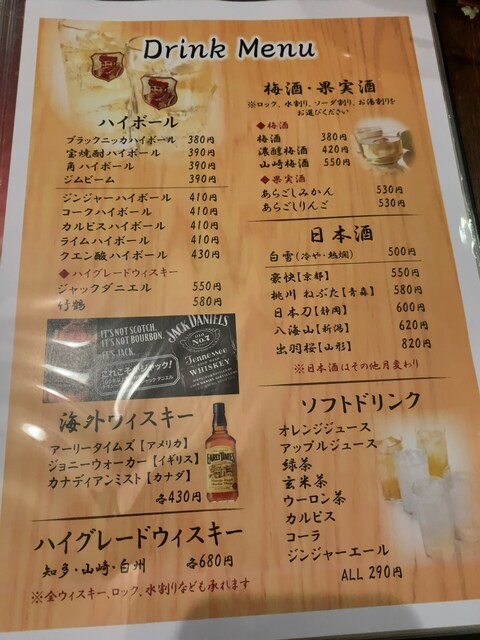 Drink Menu
ハイボール
ブラックニッカハイボール 380円
宝焼酎ハイボール 390円
角ハイボール 390円
ジムビーム 390円
ジンジャーハイボール 410円
コークハイボール 410円
カルピスハイボール 410円
ライムハイボール 410円
クエン酸ハイボール 430円
◆ハイグレードウィスキー
ジャックダニエル 550円
竹鶴 580円
IT'S NOT SCOTCH.
IT'S NOT BOURBON.
IT'S JACK.
これこそ、ジャック!
JACK DANIEL'S
OLD
No.7
Tennessee
WHISKEY
海外ウィスキー
アーリータイムズ【アメリカ】
ジョニーウォーカー【イギリス】
カナディアンミスト【カナダ】
各430円
EARLY TIMES
ハイグレードウィスキー
知多・山崎・白州 各680円
※全ウィスキー、ロック、水割りなども承れます
梅酒・果実酒
※ロック、水割り、ソーダ割り、お湯割りを
お選びください
◆梅酒
梅酒 380円
濃醇梅酒 420円
山崎梅酒 550円
◆果実酒
あらごしみかん 530円
あらごしりんご 530円
日本酒
白雪(冷や・熱燗) 500円
豪快【京都】 550円
桃川 ねぶた【青森】 580円
日本刀【静岡】 600円
八海山【新潟】 620円
出羽桜【山形】 820円
※日本酒はその他月変わり
ソフトドリンク
オレンジジュース
アップルジュース
緑茶
玄米茶
ウーロン茶
カルピス
コーラ
ジンジャーエール
ALL 290円